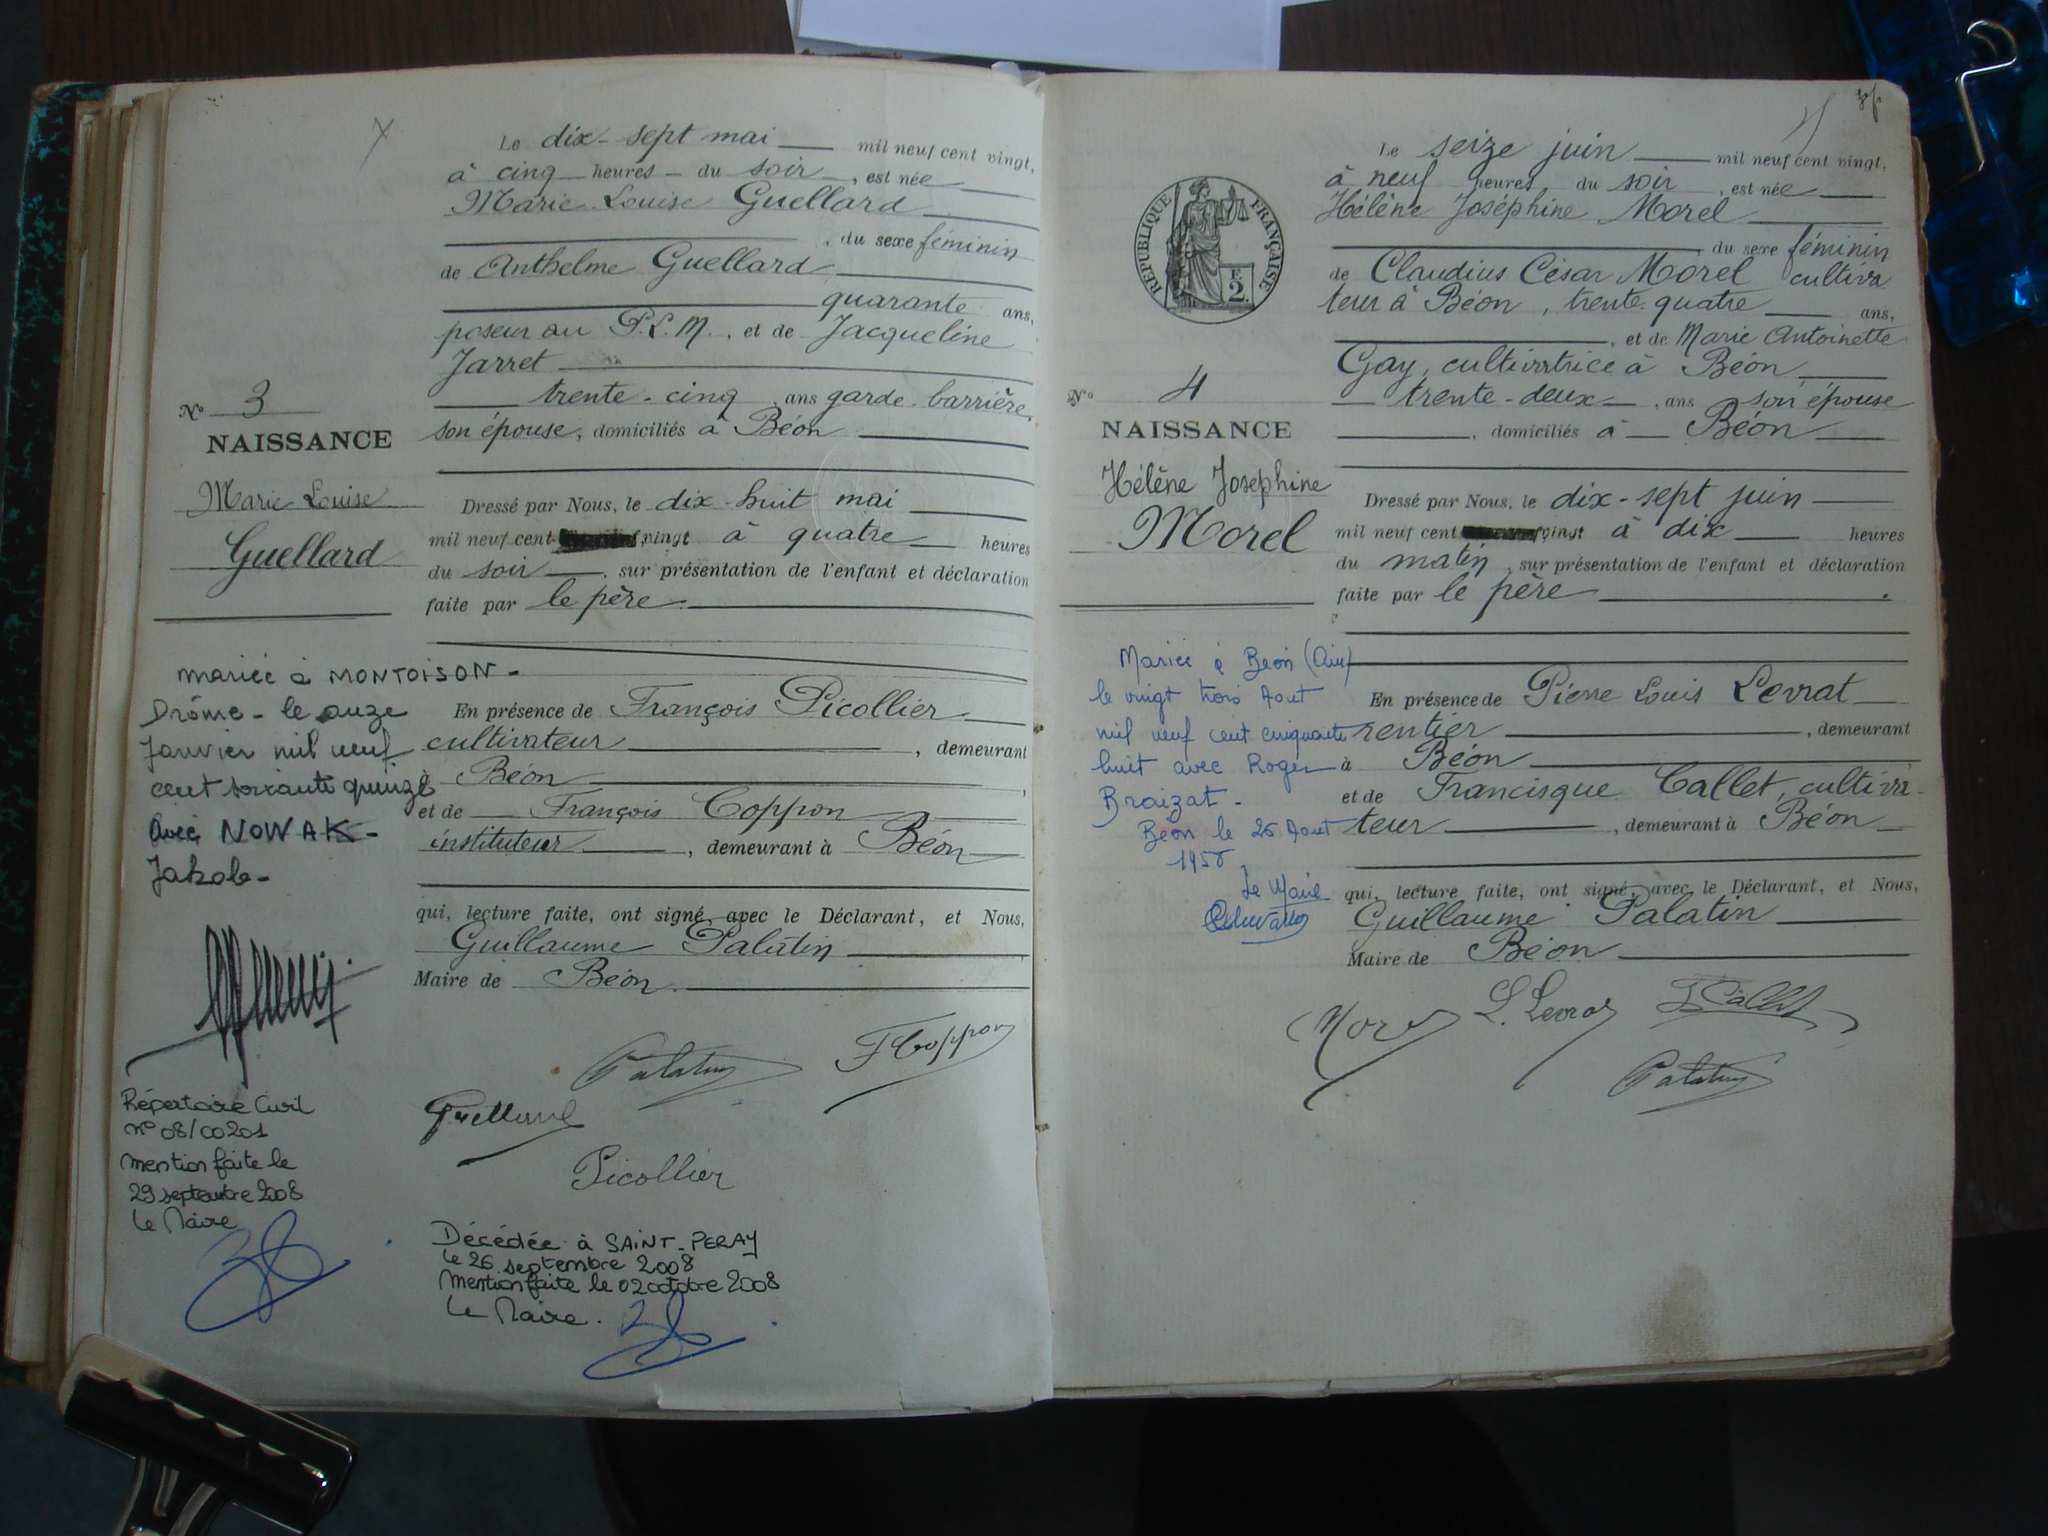 Le dix-sept mai mil neuf cent vingt,
à cinq heures du soir, est née
Marie Louise Guellard
, du sexe féminin
de Anthelme Guellard
quarante ans,
poseur au P.L.M., et de Jacqueline
Jarret
trente-cinq ans garde-barrière,
son épouse, domiciliés à Béon
N° 3
NAISSANCE
Marie Louise
Guellard
Dressé par Nous, le dix-huit mai
mil neuf cent vingt à quatre heures
du soir, sur présentation de l'enfant et déclaration
faite par le père.
mariée à MONTOISON -
Drôme - le onze
Janvier mil neuf
cent soixante quinze
avec NOWAK -
Jakob -
En présence de François Picollier
cultivateur, demeurant
à Béon,
et de François Coppon
instituteur, demeurant à Béon
qui, lecture faite, ont signé, avec le Déclarant, et Nous,
Guillaume Palatin
Maire de Béon.
Palatin
F Coppon
Guellard
Picollier
Répertoire Civil
n° 08/00201
mention faite le
29 septembre 2008
Le Maire
Décédée à SAINT-PERAY
le 26 septembre 2008
Mention faite le 02 octobre 2008
Le Maire.
Le seize juin mil neuf cent vingt,
à neuf heures du soir, est née
Hélène Joséphine Morel
du sexe féminin
de Claudius César Morel cultiva
teur à Béon, trente-quatre ans,
, et de Marie Antoinette
Gay, cultivatrice à Béon
trente-deux, ans son épouse
, domiciliés à Béon
RÉPUBLIQUE FRANÇAISE
F.
2
N° 4
NAISSANCE
Hélène Josephine
Morel
Dressé par Nous, le dix-sept juin
mil neuf cent vingt à dix heures
du matin, sur présentation de l'enfant et déclaration
faite par le père.
Mariée à Béon (Ain)
le vingt trois Aout
mil neuf cent cinquante
huit avec Roger
Braizat -
Béon le 26 Aout
1958
Le Maire
En présence de Pierre Louis Levrat
rentier, demeurant
à Béon
et de Francisque Callet, cultiva-
teur, demeurant à Béon
qui, lecture faite, ont signé, avec le Déclarant, et Nous,
Guillaume Palatin
Maire de Béon
Morel
L. Levrat
F Callet
Palatin